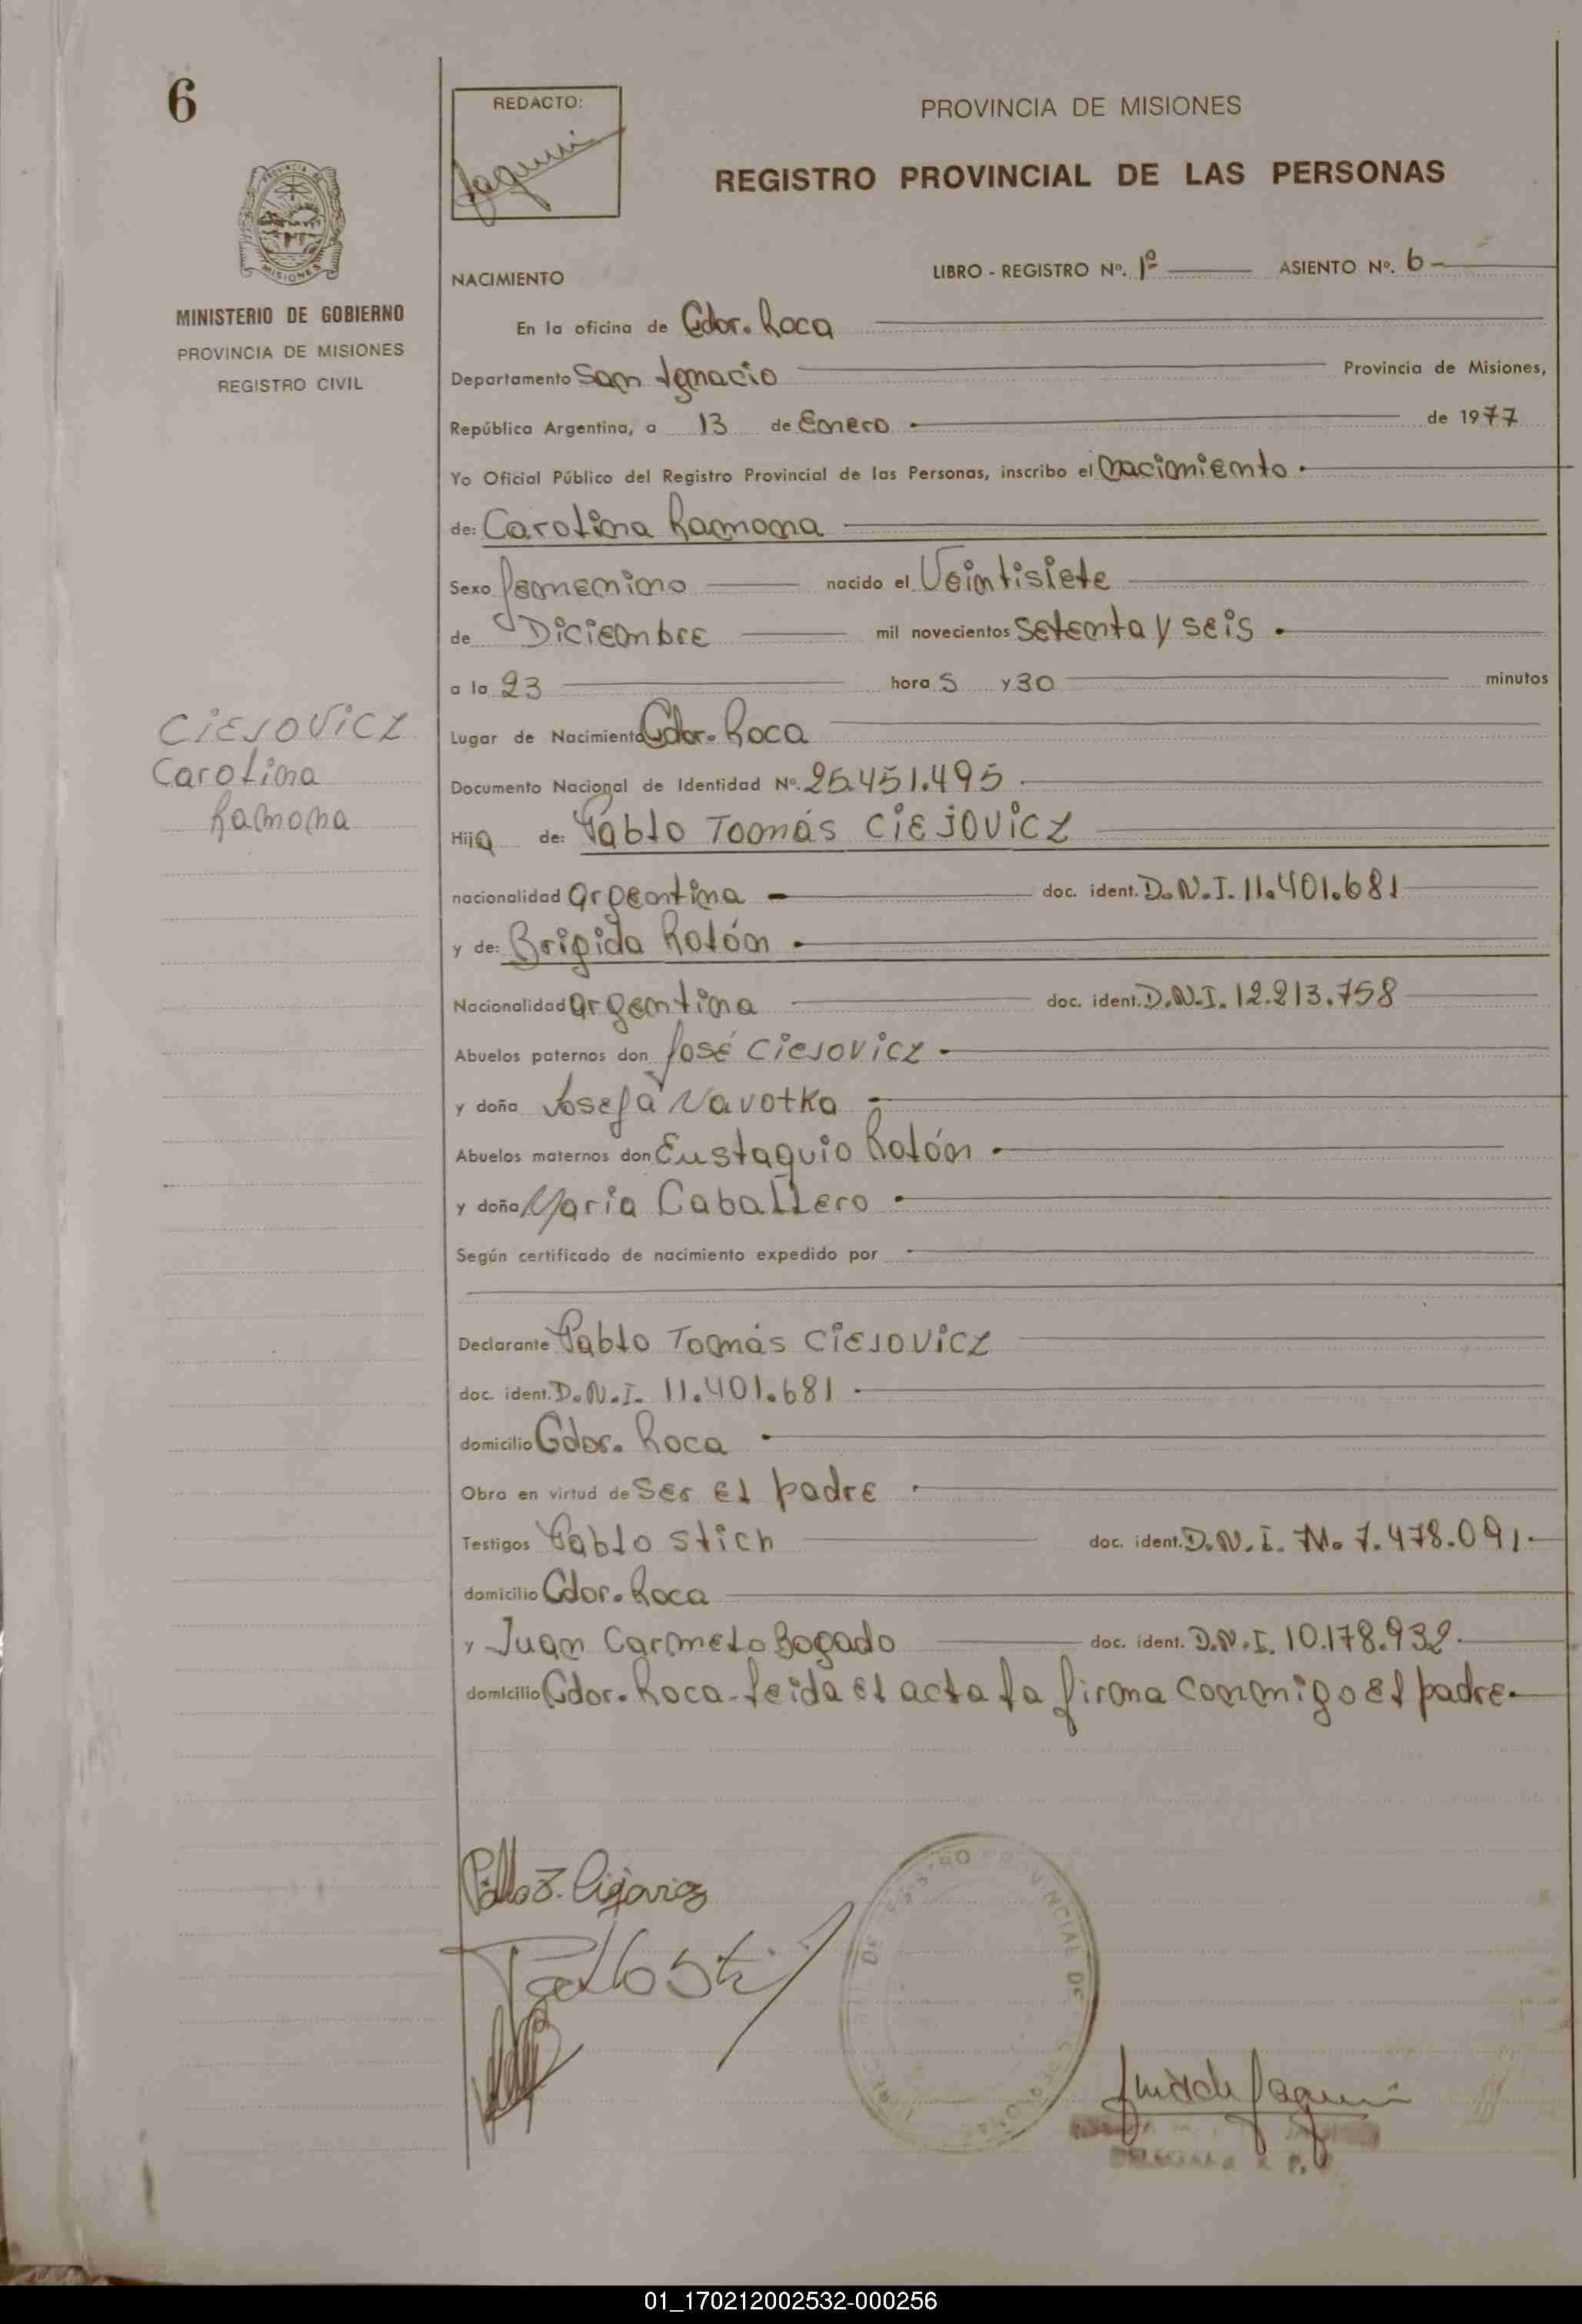 6
REDACTO:
PROVINCIA DE MISIONES
REGISTRO PROVINCIAL DE LAS PERSONAS
MISIONES
MINISTERIO DE GOBIERNO
PROVINCIA DE MISIONES
REGISTRO CIVIL
NACIMIENTO
LIBRO - REGISTRO Nº. 1º ASIENTO Nº. 6
En la oficina de Gdor. Roca
Departamento San Ignacio Provincia de Misiones,
República Argentina, a 13 de Enero de 1977
Yo Oficial Público del Registro Provincial de las Personas, inscribo el nacimiento
de: Carolina Ramona
Sexo femenino nacido el Veintisiete
de Diciembre mil novecientos setenta y seis
a la 23 hora s y 30 minutos
Lugar de Nacimiento Gdor. Roca
CIEJOVICZ
Carolina
Ramona
Documento Nacional de Identidad Nº. 25.451.495
Hija de: Pablo Tomás CIEJOVICZ
nacionalidad argentina doc. ident. D.N.I. 11.401.681
y de: Brigida Rolón
Nacionalidad argentina doc. ident. D.N.I. 12.213.758
Abuelos paternos don José CIEJOVICZ
y doña Josefa Navotka
Abuelos maternos don Eustaquio Rolón
y doña Maria Caballero
Según certificado de nacimiento expedido por
Declarante Pablo Tomás CIEJOVICZ
doc. ident. D.N.I. 11.401.681
domicilio Gdor. Roca
Obra en virtud de ser el padre
Testigos Pablo Stich doc. ident. D.N.I. M. 7.478.091
domicilio Gdor. Roca
y Juan Carmelo Bogado doc. ident. D.N.I. 10.178.932
domicilio Gdor. Roca - leida el acta la firma conmigo el padre
REGISTRO PROVINCIAL DE
01_170212002532-000256